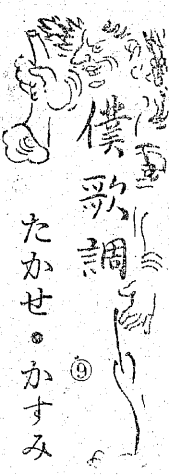 僕歌調
⑨
たかせ・かすみ